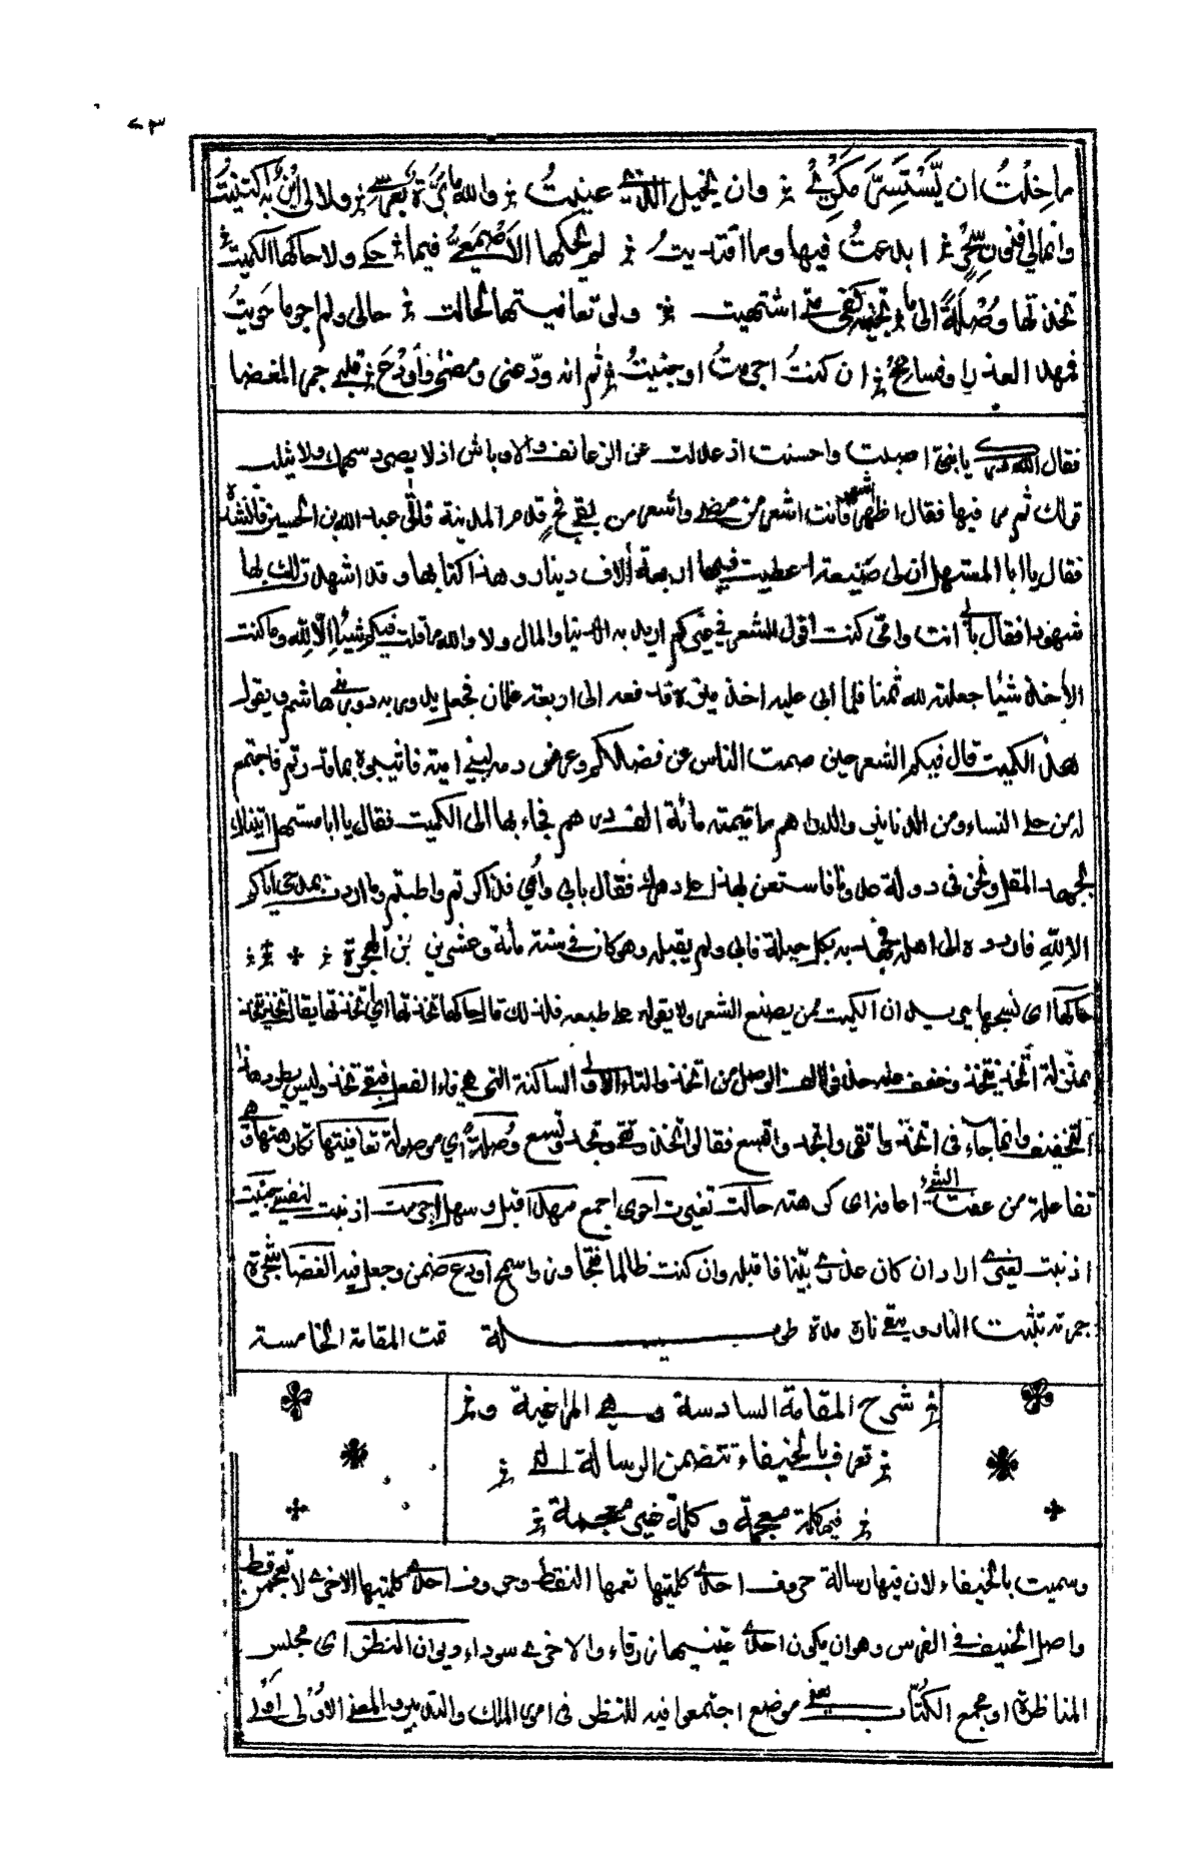 ٧٣
ما خِلْتُ ان يَسْتَسِرَّ مَكْرِي وان يخيل الذي عنيتُ والله ما بَرَّةٌ بعرسي ولا لي ابن به اكتنيتُ
وانما لي فنون سحر ابدعت فيها وما اقتديتُ لم يحكها الأصمعي فيما حكى ولا حاكها الكميتُ
تخذتها وُصْلَةً الى ما تجنيه كفي متى اشتهيت ولو تعافيتها لحالت حالي ولم احو ما حويتُ
فمهد العذر او فسامح ان كنتُ اجرمتُ او جنيتُ ثم انه ودّعني ومضى وأودع قلبي جمر الغضا
فقال الفرزدق يا بني اصبت واحسنت اذ عدلت عن الزعانف والاوباش اذ لا يصرد سهمك ولا يثلب
قولك ثم مر فيها فقال اظهر فانت اشعر من مضى واشعر من بقى فقدم المدينة فلقى عبد الله بن الحسين فانشده
فقال يا ابا المستهل ان لى ضيعة اعطيت فيها اربعة آلاف دينار وهذا كتابها وقد اشهدت لك بها
شهودا فقال بأبى انت وامّى كنت اقول الشعر فى غيركم اريد به الدنيا والمال ولا والله ما قلت فيكم شيئا الا لله وما كنت
لآخذ شيئا جعلته لله ثمنا فلما ابى عليه اخذ فدفعه الى اربعة غلمان فجعل يدور به دور بنى هاشم ويقول
هذا الكميت قال فيكم الشعر حين صمت الناس عن فضلكم وعرض دمه لبنى امية فاثيبوه بما قدرتم فاجتمع
له من حلى النساء ومن الدنانير والدراهم ما قيمته مائة الف درهم فجاء بها الى الكميت فقال يا ابا مستهل اتيناك
بجهد المقل ونحن فى دولة عدونا فاستعن بهذا على دهرك فقال بابى وأمى قد اكرتم واطبتم وما اردت بمدحى اياكم
الا لله فاردده الى اهله فجهد به بكل حيلة فابى ولم يقبله وهو كان فى سنة مائة وعشرين من الهجرة
حاكها اى نسجها يريد ان الكميت ممن يصنع الشعر ولا يقوله على طبعه فلذلك قال حاكها تخذتها اى اتخذتها يقال تخذ يتخذ
بمنزلة اتخذ يتخذ وخفف منه حذف الف الوصل من اتخذ والتاء الاولى الساكنة التى هى فاء الفعل فبقى تخذ وليس يطرد هذا
التخفيف وانما جاء فى اتخذ واتقى واتجه واتسع فقالوا تخذ وتقى وتجه وتسع وُصلة اى موصولة تعافيتها تكارهتها وهى
تفاعلت من عفت الشئ اعافه اى كرهته حالت تغيرت احوى اجمع مهد اقبل وسهل اجرمت اذنبت لنفسى جنيت
اذنبت لغيرى اراد ان كان عذرى بيّنا فاقبله وان كنت ظالما فتجاوز واسمح اودع ضمن وجعل فيه الغضا شجرة
جمرته تثبت النار ويبقى ناره مدة طويلة تمت المقامة الخامسة
شرح المقامة السادسة وهى المراغية و
تعرف بالخيفاء تتضمن الرسالة التى
فيها كلمة معجمة وكلمة غير معجمة
وسميت بالخيفاء لان فيها رسالة حروف احدى كلمتيها تعمها النقط وحروف احدى كلمتيها الاخرى لا تعجمن قط
واصل الخيف فى الفرس وهو ان يكون احدى عينيها زرقاء والاخرى سوداء ديوان المنطق اى مجلس
المناظرة او مجمع الكُتّاب يعنى موضع اجتمعوا فيه للنظر فى امر الملك والتدبير والمعنى الاول اولى